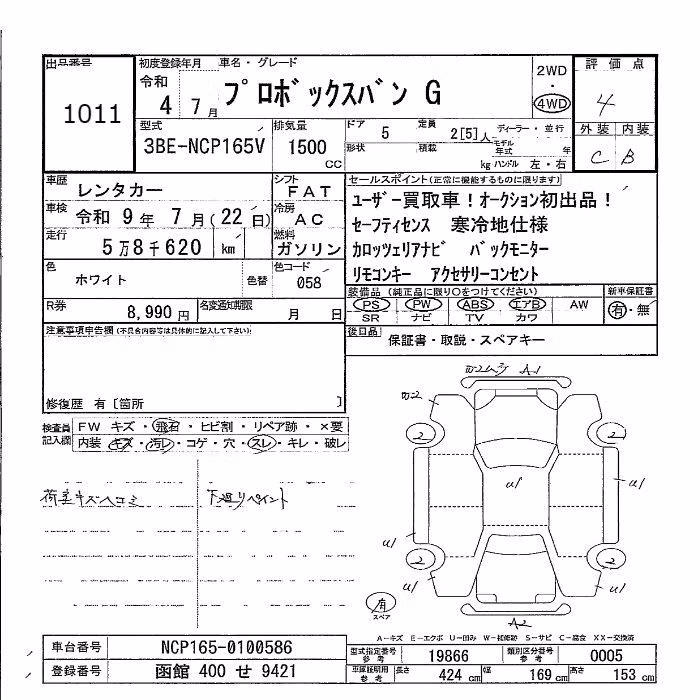 出品番号 初度登録年月 車名・グレード 2WD 評価点
1011 令和 4 7月 プロボックスバン G 4WD 4
型式 排気量 ドア 5 定員 2[5]人 ディーラー・並行 外装 内装
3BE-NCP165V 1500 CC 形状 積載 kg モデル年式 年 ハンドル 左・右 C B
車歴 レンタカー シフト FAT セールスポイント(正常に機能するものに限ります)
車検 令和 9年 7月(22日) 冷房 AC ユーザー買取車!オークション初出品!
走行 5万8千620 km 燃料 ガソリン セーフティセンス 寒冷地仕様
色 ホワイト 色替 色コード 058 カロッツェリアナビ バックモニター
リモコンキー アクセサリーコンセント
R券 8,990円 名変通知期限 月 日 装備品(純正品に限り○をつけてください) 新車保証書
PS PW ABS エアB AW 有・無
SR ナビ TV カワ
注意事項申告欄(不具合内容等は具体的に記入して下さい) 後日品 保証書・取説・スペアキー
修復歴 有〔箇所 〕
検査員記入欄 FW キズ・飛石・ヒビ割・リペア跡・×要
内装 キズ・汚レ・コゲ・穴・スレ・キレ・破レ
荷室キズヘコミ 下廻りペイント
A1
2 2
U1 U1
U1 U1
2 2
U1 U1
有 スペア A2
A-キズ E-エクボ U-凹み W-補修跡 S-サビ C-腐食 XX-交換済
車台番号 NCP165-0100586 型式指定番号 参考 19866 類別区分番号 参考 0005
登録番号 函館 400 せ 9421 車庫証明用 参考 長さ 424 cm 幅 169 cm 高さ 153 cm